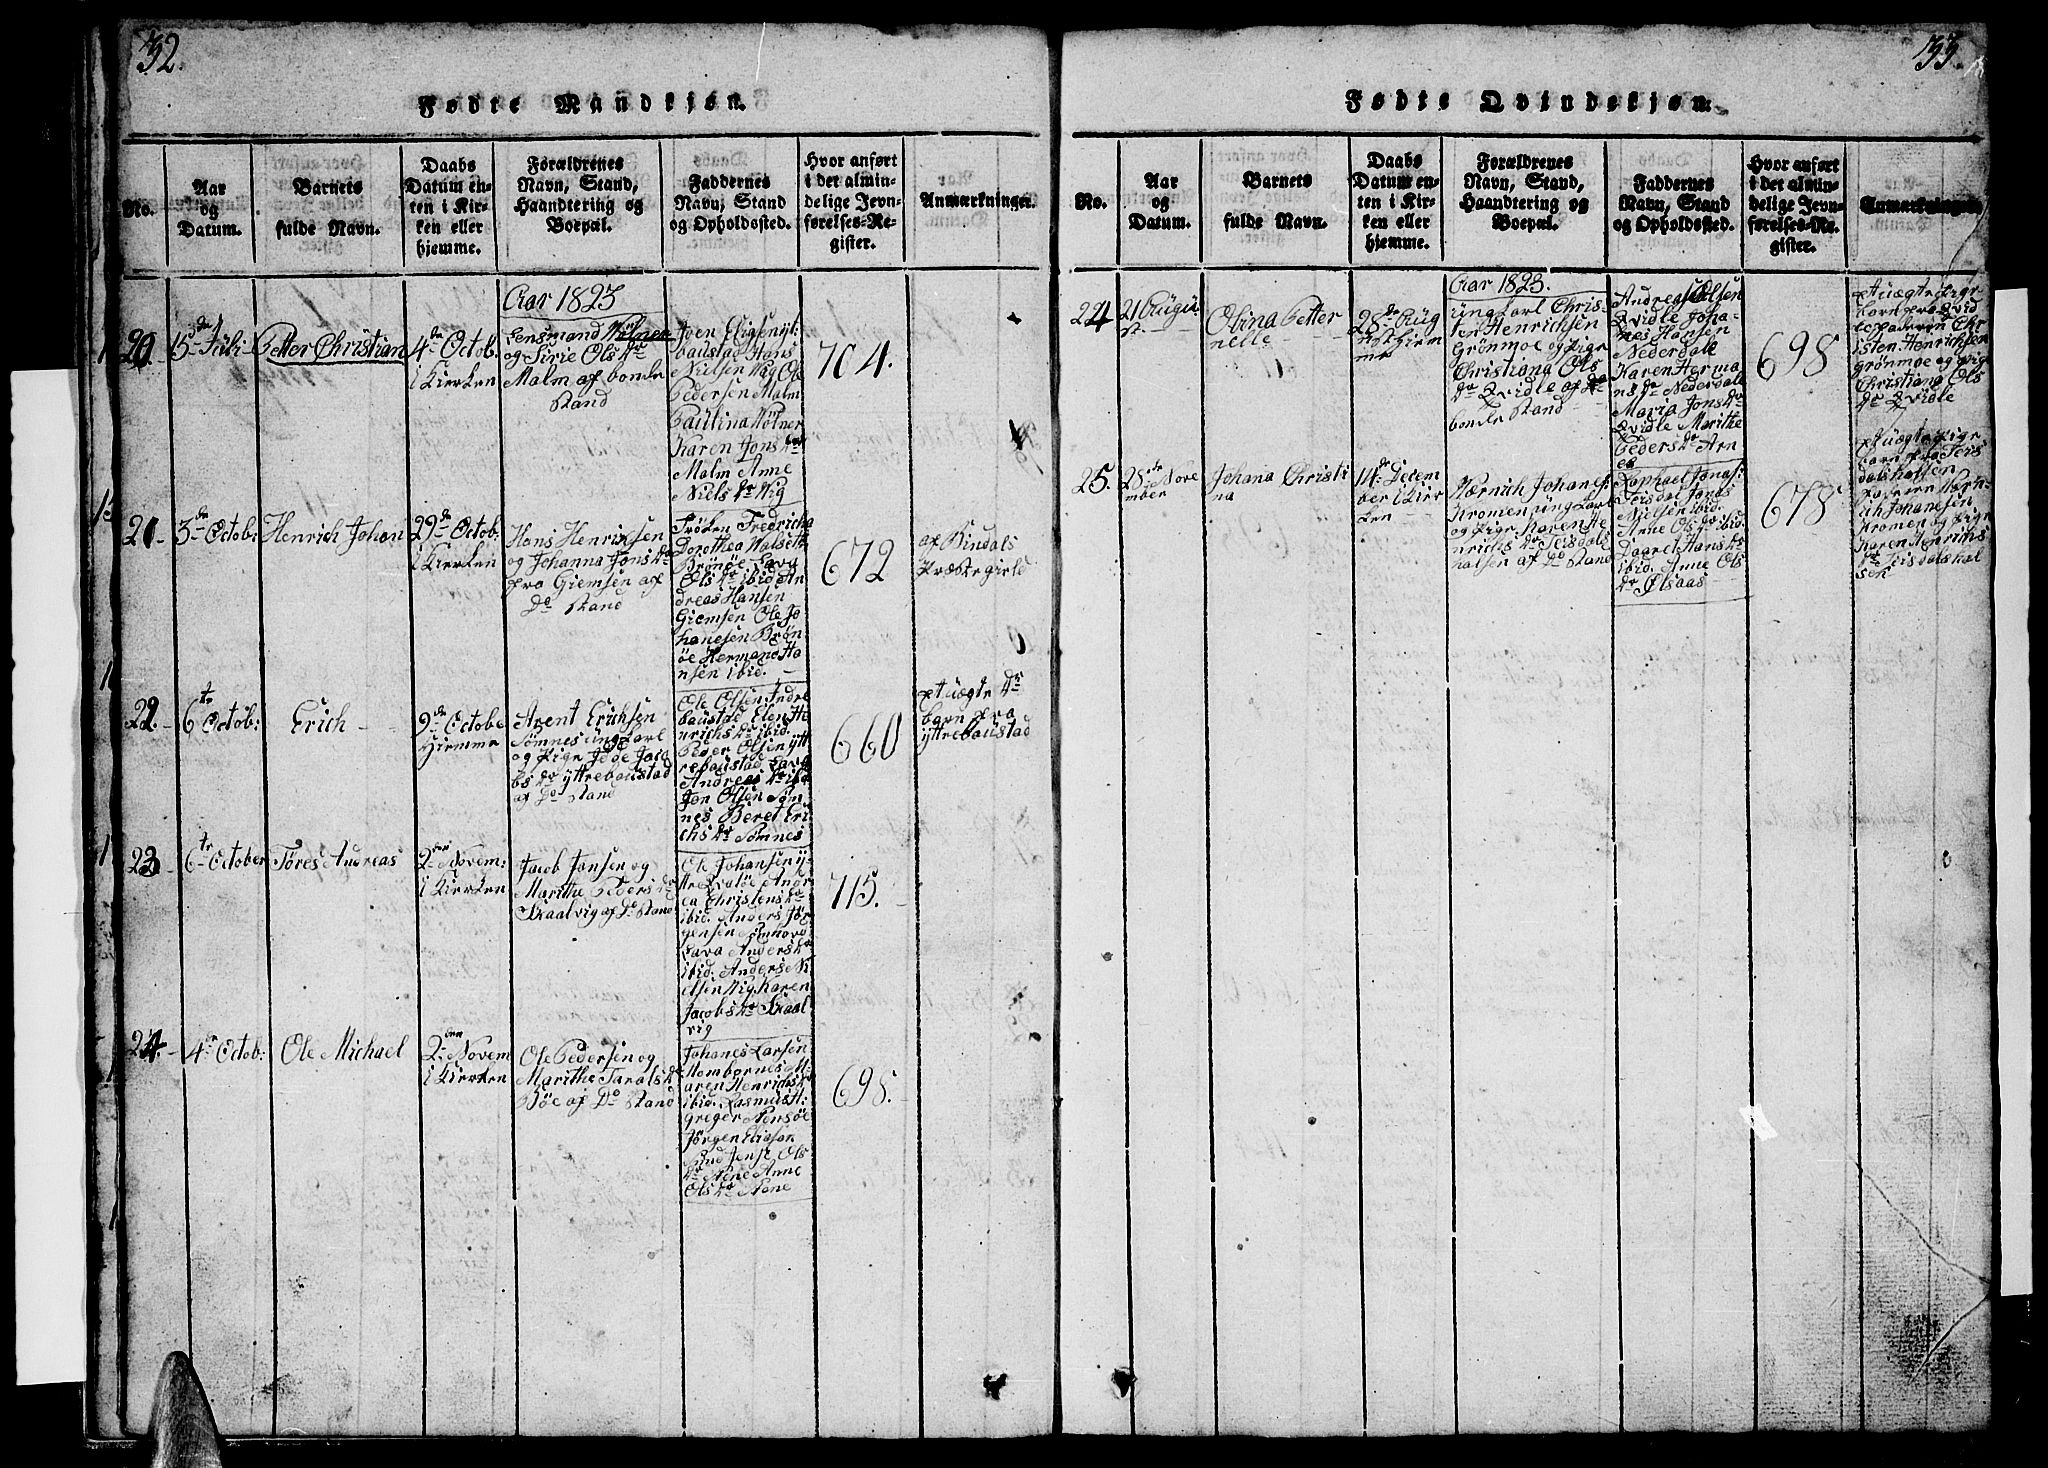 32.
Fødte Mandkjøn.
No.
Aar
og
Datum.
Barnets
fulde Navn.
Daabs
Datum en-
ten i Kir-
ken eller
hjemme.
Forældrenes
Navn, Stand,
Haandtering og
Boepæl.
Faddernes
Navn, Stand
og Opholdsted.
Hvor anført
i det almin-
delige Jevn-
førelses-Re-
gister.
Anmærkninger.
20
15de Juli
Petter Christian
4de Octob:
i Kierken
Aar 1823
Lensmand
og Sirie Ols dr
Malm af bonde
Stand
Nielsen Vig Ole
Pedersen Malm
Paulina
Karen Jons dr
Malm Anne
Niels dr Vig
704.
21
3de Octob:
Henrich Johan
29de Octob:
i Kierken
Hans Henriksen
og Johanna Jons dr
fra Giemsen af
Do Stand
Frøken Fredricha
Dorothea
Brønøe Sara
Ols dr ibid An
dreas Hansen
Giemsen Ole Jo
hanesen Brøn
øe Hermand Ha
nsen ibid.
672
af Bindals
Præstegield
22.
6te Octob:
Erich
9de Octobe
Hiemme
Arent Erichsen
Sømnes ungkarl
og Pige Jaco
bs dr yttrebaustad
af Do Stand
Ole Olsen Indre
baustad Elen He
nrichs dr ibid.
Peder Olsen ytt
rebaustad Sara
Andreas dr ibid
Jon Olsen Søm
nes Beret Eri
chs dr Sømnes
660
Uægte
barn fra
yttrebaustad
23
6te October
Tøres Andreas
2den Novem:
i Kierken
Jacob Jonsen og
Marithe Peders dr
Skaalvig af Do Stand
Ole Johansen y-
tre Qvaløe Andr
ea Christens dr
ibid. Anders Jør
gensen
Sara Anders dr
ibid. Anders Ni
elsen Vig Karen
Jacobs dr Skaal
vig
715.
24.
4de Octob:
Ole Michael
2den Novem
i Kierken
Ole Pedersen og
Marithe Tarals dr
Bøe af Do Stand
Johanes Larsen
Hombornes M-
aren Henrichs dr
ibid. Rasmus H:
greger
Jørgen Eliasen
Sund Jense Ols
dr Anne
Ols dr
695.
33.
Fødte Qvindekjøn.
No.
Aar
og
Datum.
Barnets
fulde Navn.
Daabs
Datum en-
ten i Kir-
ken eller
hjemme.
Forældrenes
Navn, Stand,
Haandtering og
Boepæl.
Faddernes
Navn, Stand
og Opholdsted.
Hvor anført
i det almin-
delige Jevn-
førelses-Re-
gister.
Anmærkninger
24
21 Augu
st.
Olina Petter
nelle
28de Aug
ust Hiem
me
Aar 1823.
ungkarl Chris-
ten Henrichsen
Grønmoe og Pige
Christiana Ols
dr Qvidle af
bonde Stand
Andreas Olsen
Qvidle Joha-
nes Hansen
Nederdale
Karen Herma
ns dr Nederdale
Maria Jons dr
Qvidle Marithe
Peders dr Arn
es
698
Uægte Pige
barn fra Qvid
le faderen Chr
isten Henrichsen
grønmoe og Pig
Christiana Ols
dr Qvidle
25.
28de Nove
mber
Johana Christi
na
14de Decem
ber i Kier
ken
Johanes:
Kromen ungkarl
og Pige Karen He
nrichs dr Teisdals
halsen af Do Stand
Raphael Jonas:
Teisdal Jonas
Nielsen ibid.
Arne Ols dr ibid.
Zaaret Hans dr
ibid. Anne Ols
dr Olsaas
678
Uægte Pige
barn fra Teis
dalshalsen
faderen
Johanesen
Kromen og Pige
Karen Henrichs
dr Teisdalshal
sen